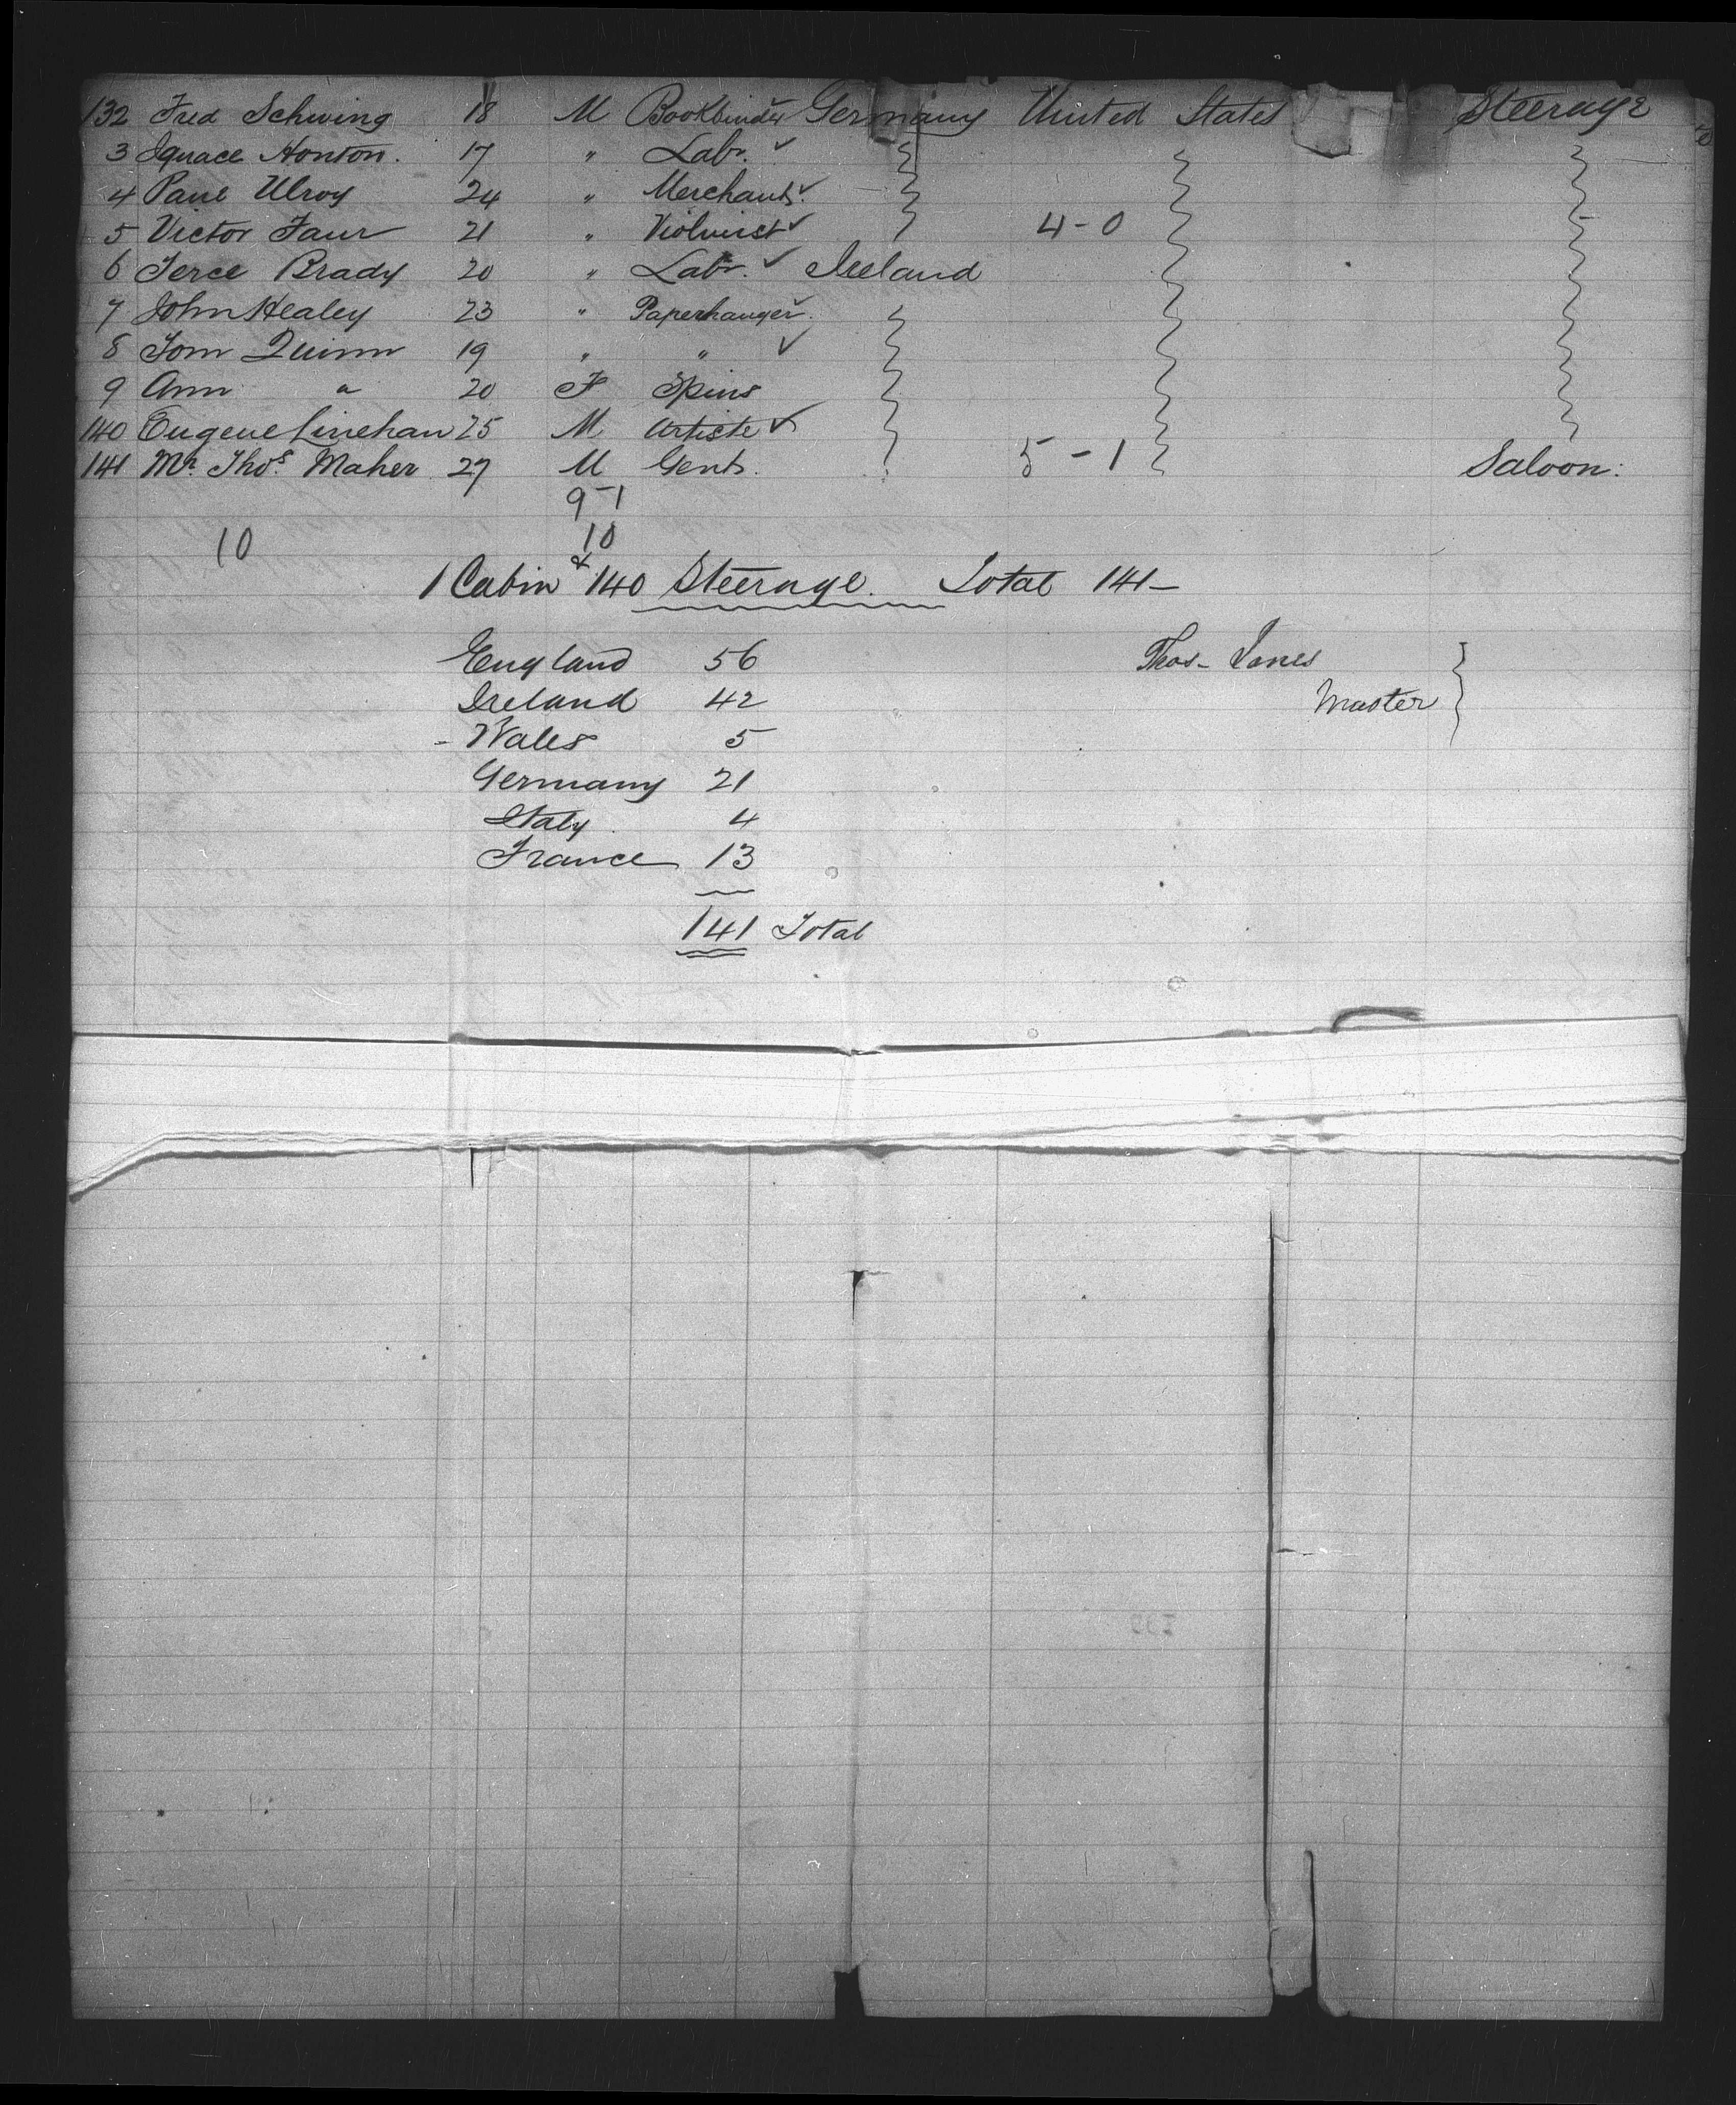 132 Fred Schwing 18 M Bookbinder Germany United States Steerage
3 Ignace Honton. 17 " Labr. ✓
4 Paul Ulroy 24 " Merchant. ✓
5 Victor Faur 21 " Violinist ✓ 4-0
6 Terce Brady 20 " Labr. ✓ Ireland
7 John Healey 23 " Paperhanger. ✓
8 Tom Quinn 19 " " ✓
9 Ann " 20 F Spins
140 Eugene Linehan 25 M Artiste ✓
141 Mr. Thos. Maher 27 M Gent. 5-1 Saloon.
9-1
10 10
1 Cabin & 140 Steerage. Total 141-
England 56 Thos- Jones
Ireland 42 Master
- Wales 5
Germany 21
Italy 4
France 13
141 Total